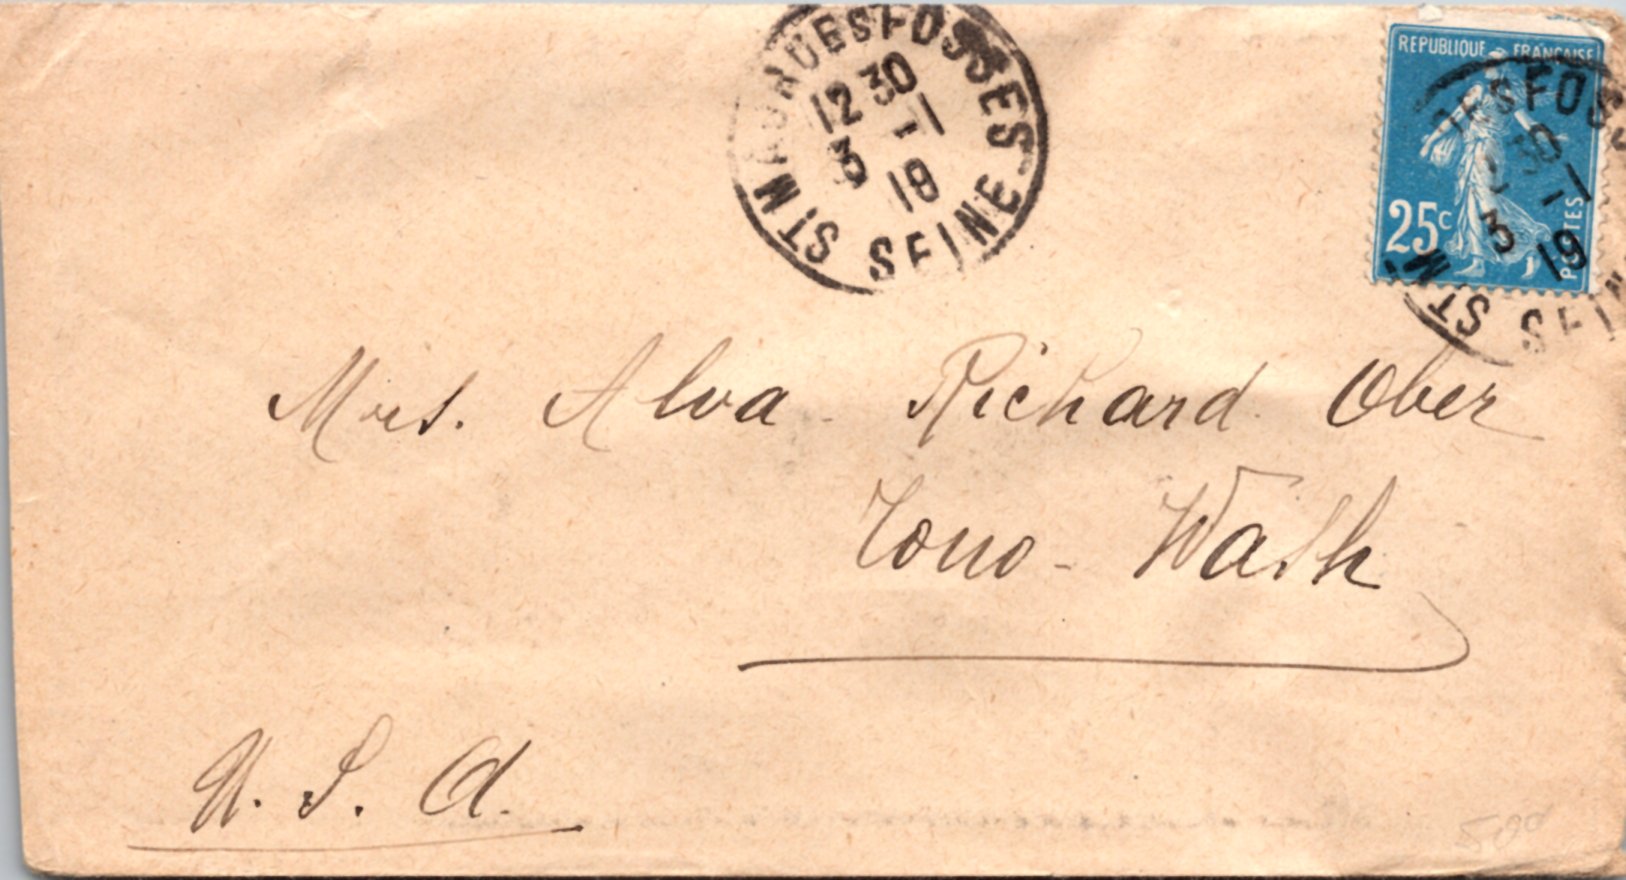 ST MAUR DES FOSSES
12 30
3 - 1
19
SEINE
REPUBLIQUE FRANÇAISE
25c
POSTES
Mrs. Alva Richard Ober
Tono - Wash
U. S. A.